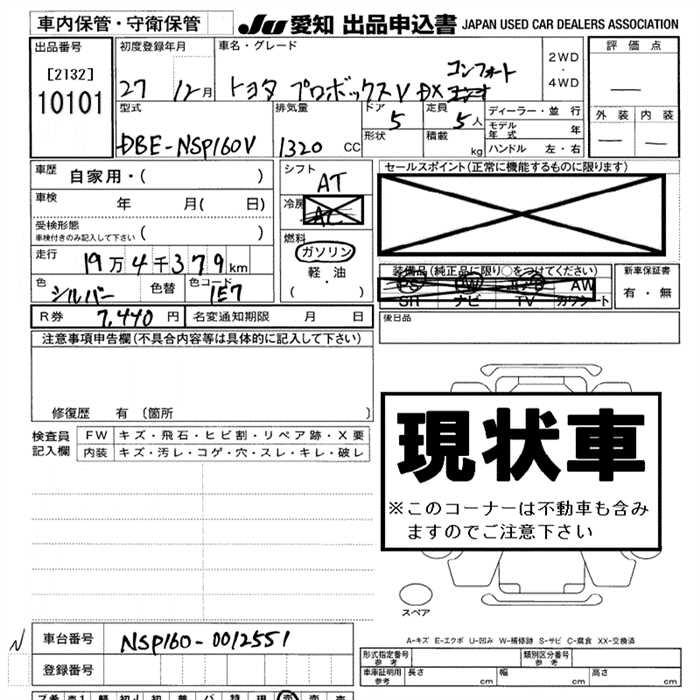 車内保管・守衛保管 JU 愛知 出品申込書 JAPAN USED CAR DEALERS ASSOCIATION
出品番号 初度登録年月 車名・グレード 評価点
[2132] 27 12月 トヨタ プロボックスV DX コンフォート 2WD・4WD
10101
型式 排気量 ドア 定員 ディーラー・並行 外装 内装
DBE-NSP160V 1320 CC 5 5人 モデル年式 年
形状 積載 kg ハンドル 左・右
車歴 自家用・( ) シフト AT セールスポイント(正常に機能するものに限ります)
車検 年 月( 日) 冷房 AC
受検形態
車検付きのみ記入して下さい ( ) 燃料
走行 19万4千379km ガソリン
軽・油
( )
装備品(純正品に限り○をつけてください) 新車保証書
PS PW エアB AW 有・無
SR ナビ TV カワシート
色 シルバー 色替 色コード 1E7
R券 7,440円 名変通知期限 月 日 後日品
注意事項申告欄(不具合内容等は具体的に記入して下さい)
修復歴 有 〔箇所 〕
検査員記入欄 FW キズ・飛石・ヒビ割・リペア跡・X要
内装 キズ・汚レ・コゲ・穴・スレ・キレ・破レ
現状車
※このコーナーは不動車も含み
ますのでご注意下さい
スペア
A-キズ E-エクボ U-凹み W-補修跡 S-サビ C-腐食 XX-交換済
N 車台番号 NSP160-0012551
登録番号
形式指定番号 参考 類別区分番号 参考
車庫証明用 参考 長さ cm 幅 cm 高さ cm